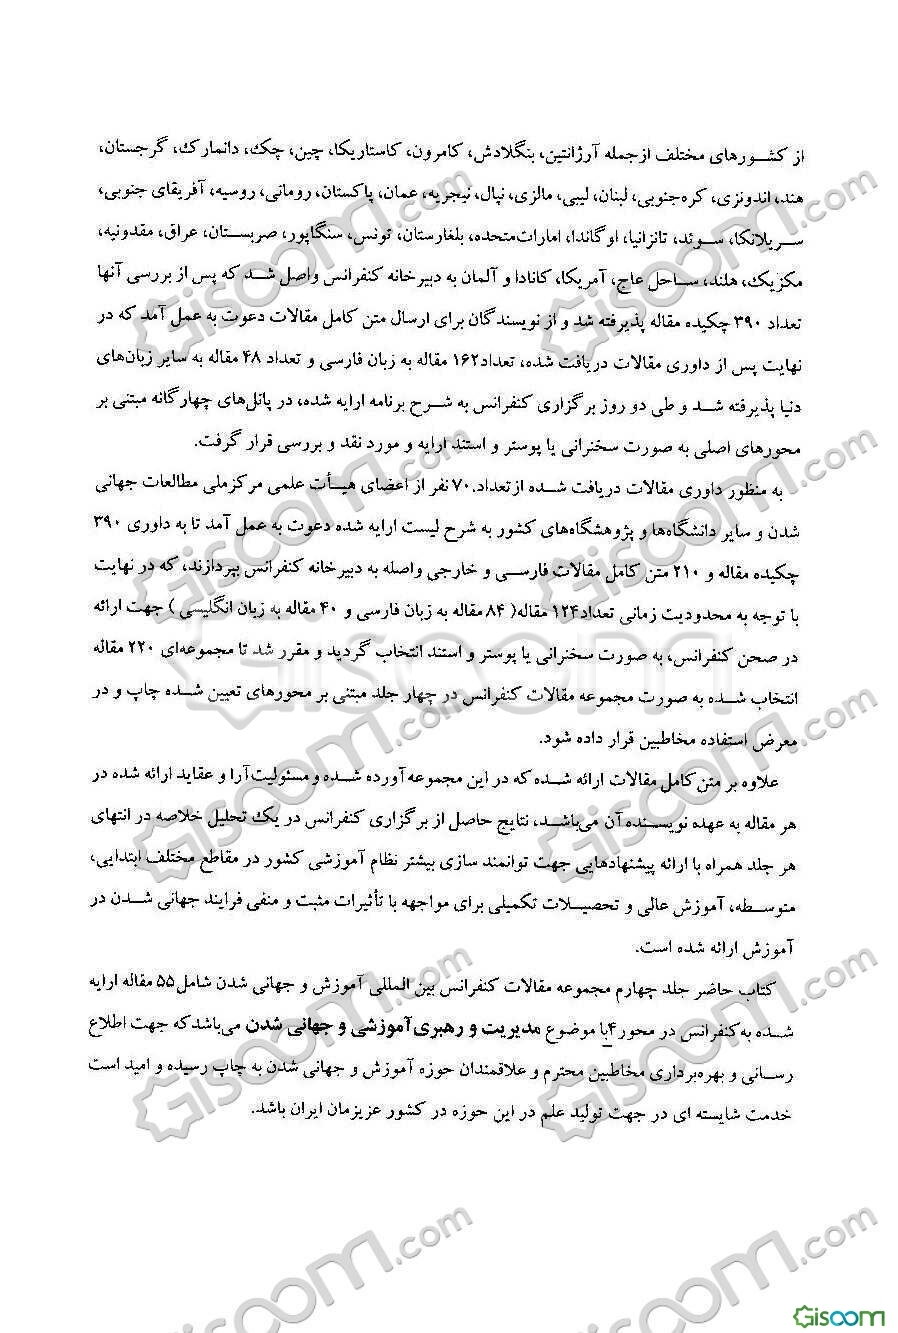 از کشورهای مختلف ازجمله آرژانتین، بنگلادش، کامرون، کاستاریکا، چین، چک، دانمارک، گرجستان،
هند، اندونزی، کره‌جنوبی، لبنان، لیبی، مالزی، نپال، نیجریه، عمان، پاکستان، رومانی، روسیه، آفریقای جنوبی،
سریلانکا، سوئد، تانزانیا، اوگاندا، امارات‌متحده، بلغارستان، تونس، سنگاپور، صربستان، عراق، مقدونیه،
مکزیک، هلند، ساحل عاج، آمریکا، کانادا و آلمان به دبیرخانه کنفرانس واصل شد که پس از بررسی آنها
تعداد ۳۹۰ چکیده مقاله پذیرفته شد و از نویسندگان برای ارسال متن کامل مقالات دعوت به عمل آمد که در
نهایت پس از داوری مقالات دریافت شده، تعداد۱۶۲ مقاله به زبان فارسی و تعداد ۴۸ مقاله به سایر زبان‌های
دنیا پذیرفته شد و طی دو روز برگزاری کنفرانس به شرح برنامه ارایه شده، در پانل‌های چهارگانه مبتنی بر
محورهای اصلی به صورت سخنرانی یا پوستر و استند ارایه و مورد نقد و بررسی قرار گرفت.
به منظور داوری مقالات دریافت شده ازتعداد.۷۰ نفر از اعضای هیأت علمی مرکزملی مطالعات جهانی
شدن و سایر دانشگاه‌ها و پژوهشگاه‌های کشور به شرح لیست ارایه شده دعوت به عمل آمد تا به داوری ۳۹۰
چکیده مقاله و ۲۱۰ متن کامل مقالات فارسی و خارجی واصله به دبیرخانه کنفرانس بپردازند، که در نهایت
با توجه به محدودیت زمانی تعداد۱۲۴ مقاله( ۸۴ مقاله به زبان فارسی و ۴۰ مقاله به زبان انگلیسی ) جهت ارائه
در صحن کنفرانس، به صورت سخنرانی یا پوستر و استند انتخاب گردید و مقرر شد تا مجموعه‌ای ۲۲۰ مقاله
انتخاب شده به صورت مجموعه مقالات کنفرانس در چهار جلد مبتنی بر محورهای تعیین شده چاپ و در
معرض استفاده مخاطبین قرار داده شود.
علاوه بر متن کامل مقالات ارائه شده که در این مجموعه آورده شده و مسئولیت آرا و عقاید ارائه شده در
هر مقاله به عهده نویسنده آن می‌باشد، نتایج حاصل از برگزاری کنفرانس در یک تحلیل خلاصه در انتهای
هر جلد همراه با ارائه پیشنهادهایی جهت توانمند سازی بیشتر نظام آموزشی کشور در مقاطع مختلف ابتدایی،
متوسطه، آموزش عالی و تحصیلات تکمیلی برای مواجهه با تأثیرات مثبت و منفی فرایند جهانی شدن در
آموزش ارائه شده است.
کتاب حاضر جلد چهارم مجموعه مقالات کنفرانس بین المللی آموزش و جهانی شدن شامل۵۵ مقاله ارایه
شده به کنفرانس در محور۴با موضوع مدیریت و رهبری آموزشی و جهانی شدن می‌باشدکه جهت اطلاع
رسانی و بهره‌برداری مخاطبین محترم و علاقمندان حوزه آموزش و جهانی شدن به چاپ رسیده و امید است
خدمت شایسته ای در جهت تولید علم در این حوزه در کشور عزیزمان ایران باشد.
Gisoom